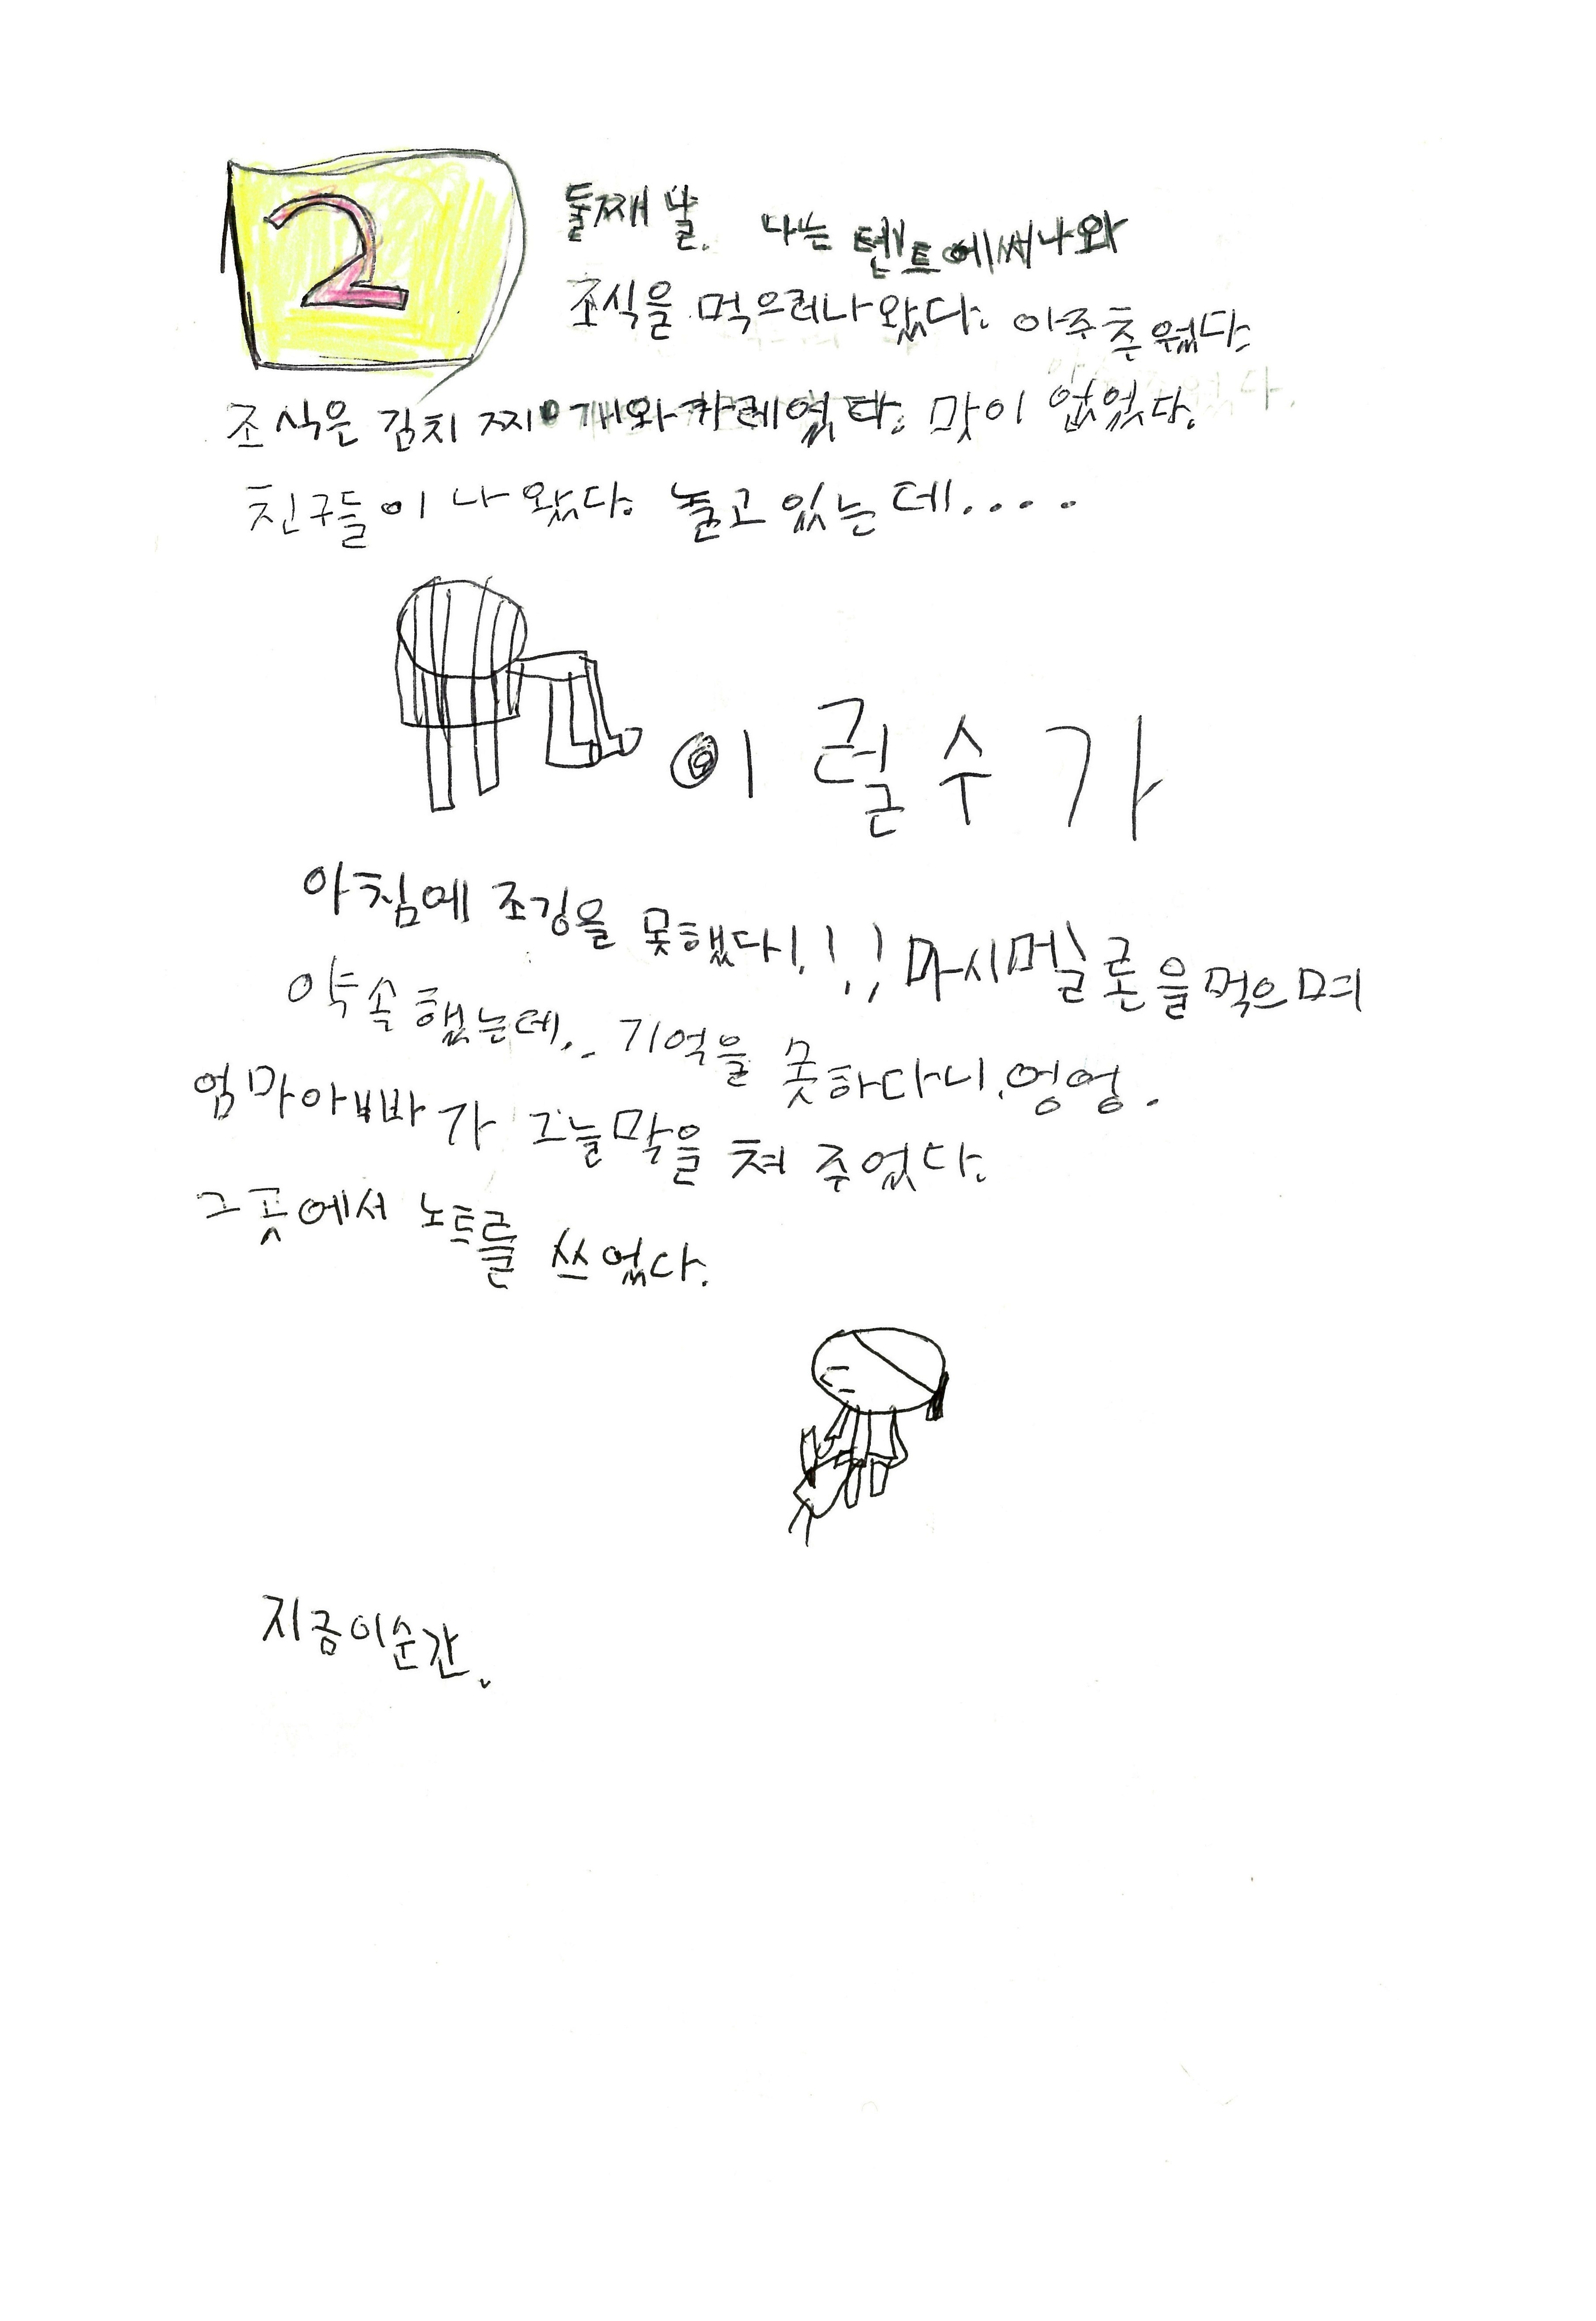 2
둘째 날. 나는 텐트에써나와
조식을 먹으러나왔다. 아주추웠다.
조식은 김치찌개와카레였다. 맛이 없었다.
친구들이 나왔다. 놀고있는데....
이럴수가
아침에 조깅을 못했다!!! 마시멜론을먹으며
약속했는데.. 기억을 못하다니.엉엉.
엄마아빠가 그늘막을 쳐 주었다.
그곳에서 노트를 쓰었다.
지금이순간.